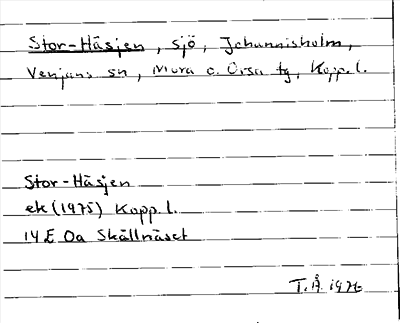 Stor-Häsjen, sjö, Johannisholm,
Venjans sn, Mora o. Orsa tg, Kopp. l.
Stor-Häsjen
ek (1975) Kopp. l.
14E Oa Skållnäset
T.Å.